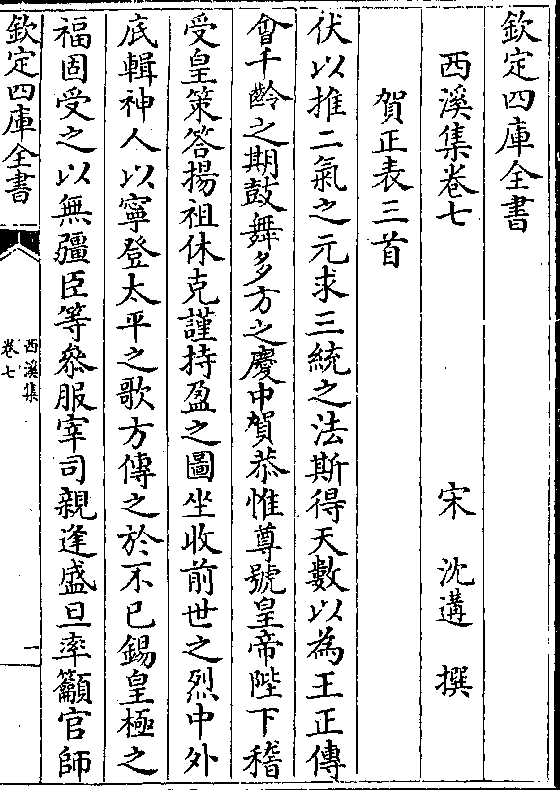 欽定四庫全書
西溪集卷七
宋 沈遘 撰
賀正表三首
伏以推二氣之元求三統之法斯得天數以為王正傳
會千齡之期鼓舞多方之慶中賀恭惟尊號皇帝陛下稽
受皇策答揚祖休克謹持盈之圖坐收前世之烈中外
底輯神人以寧登太平之歌方傳之於不已錫皇極之
福固受之以無疆臣等叅服宰司親逢盛旦率籲官師
欽定四庫全書
西溪集
卷七
一